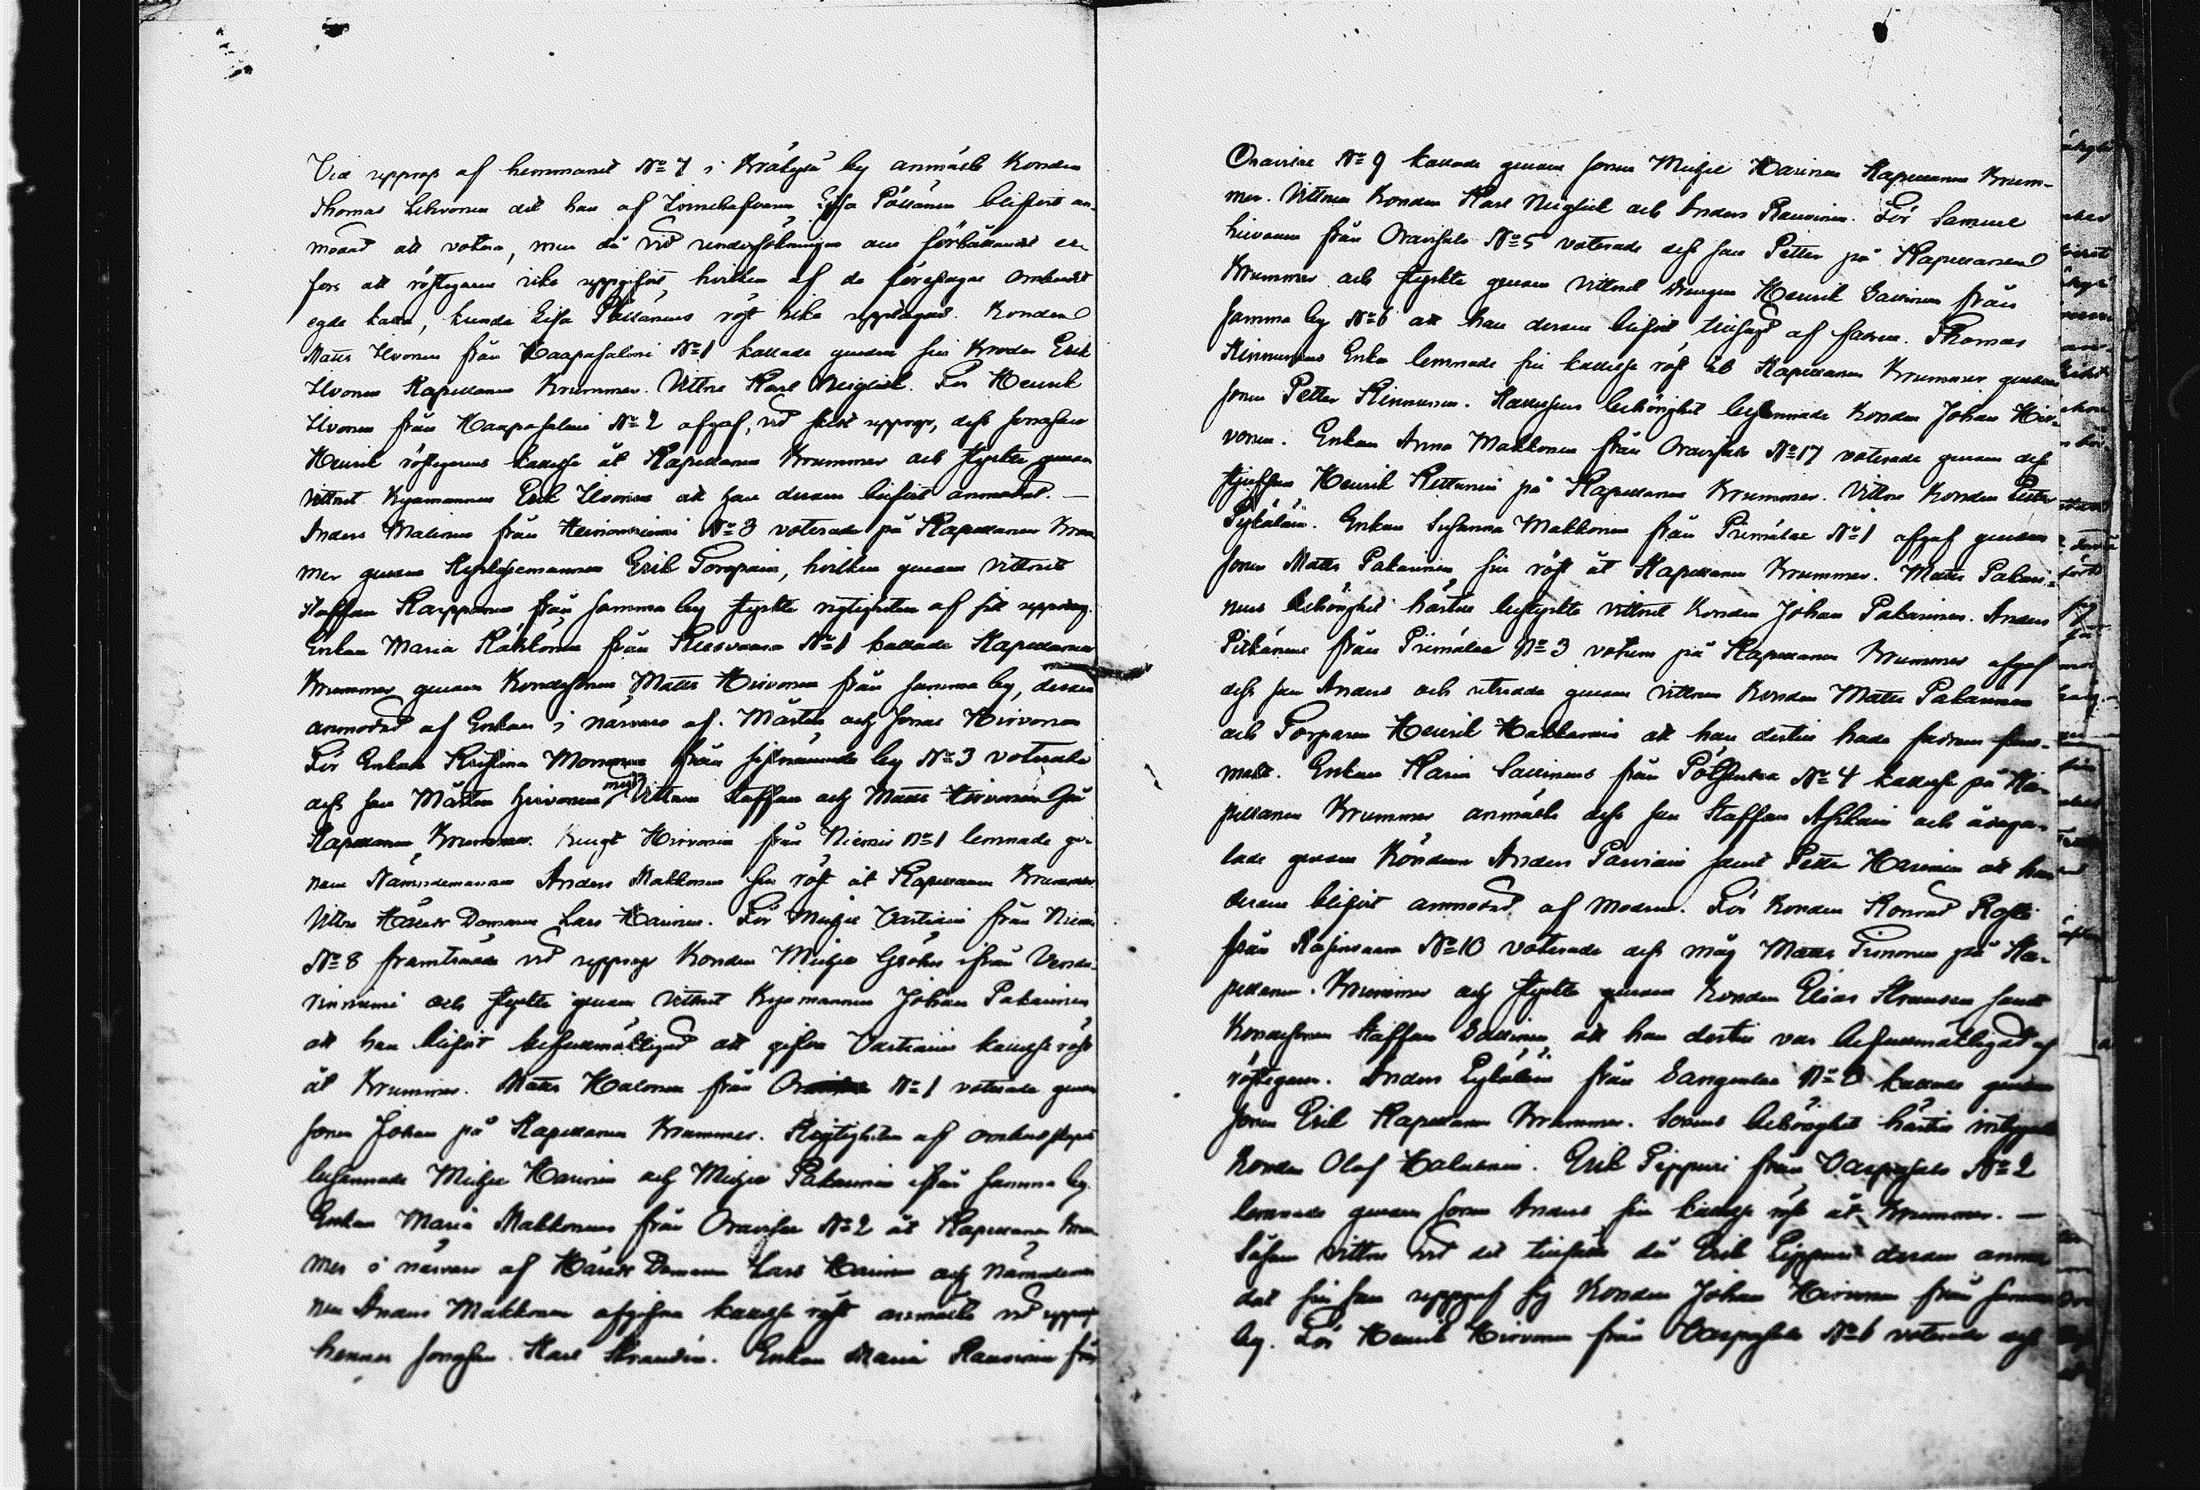 Vid upprop af hemmanet No 7 i Kräkylä by anmälte Bonden
Thomas Lehvonen det han af Innehafvaren Lisa Pöllänen blifvit an-
modad att votera, men då vid undersökningen om förhållandet er-
fors att röstegaren icke uppgifvit, hvilken af de föreslagne Ombudet
egde kalla, kunde Lisa Pöllänens röst icke upptagas. Bonden
Matts Ilvonen från Haapasalmi No 1 kallade genom sin Broder Erik
Ilvonen Kapellanen Krummer. Vittne Karl Neiglick. För Henrik
Ilvonen från Haapasalmi No 2 afgaf, vid skedt upprop, dess sonason
Henrik röstegarens kallelse åt Kapellanen Krummer och styrkte genom
vittnet Kyromannen Erik Ilvonen att han dertill blifvit anmodad. —
Anders Malinen från Heinoniemi No 3 voterade på Kapellanen Krum
mer genom Kyrkosexmannen Erik Toropain, hvilken genom Vittnet
Staffan Karppanen från samma by styrkte rigtigheten af sitt uppdrag.
Enkan Maria Kakkonen från Kesvaara No 1 kallade Kapellanen
Krummer genom Bondesonen Matts Hirvonen från samma by, dertill
anmodad af Enkan i närvaro af Mårten och Jonas Hirvonen
För Enkan Kristina Mononen från sistnämnde by No 3 voterade
dess son Mårten Hirvonen med Vittnen Staffan och Matts Hirvonen på
Kapellanen Krummer. Bengt Hirvonen från Niemis No 1 lemnade ge-
nom Nämndemannen Anders Makkonen sin röst åt Kapellanen Krummer
Vittne Härads Domaren Lars Havinen. För Michel Vartiain från Niemi
No 8 framträdde vid upprop Bonden Michel Gröhn ifrån
niemi och styrkte genom Vittnet Kyromannen Johan Pakarinen
att han blifvit befullmäktigad att gifva Vartiains kallelse röst
åt Krummer. Matts Halonen från No 1 voterade genom
sonen Johan på Kapellanen Krummer. Rigtigheten af ombudskapet
besannade Michel Havinen och Michel Pakarinen ifrån samma by.
Enkan Maria Makkonens från Oravisalo No 2 åt Kapellanen Krum
mer i närvaro af Härads Domaren Lars Havinen och Nämndeman
nen Anders Makkonen afgifna kallelse röst anmälte vid upprop
hennes sonson Karl Strandén. Enkan Maria Rautiain från
Oravisalo No 9 kallade genom sonen Michel Havinen Kapellanen Krum-
mer. Vittnen Bonden Karl Neiglick och Anders Rautiain. För Samuel
Hirvonen från Oravisalo No 5 voterade dess son Petter på Kapellanen
Krummer och styrkte genom Vittnet Drängen Henrik Sallinen från
samma by No 6 att han dertill blifvit tillsagd af fadren. Thomas
Kinnunens Enka lemnade sin kallelse röst åt Kapellanen Krummer genom
sonen Petter Kinnunen. Kallelsens behörighet besannade Bonden Johan Hir-
vonen. Enkan Anna Makkonen från Oravisalo No 17 voterade genom dess
styfson Henrik Kettunen på Kapellanen Krummer. Vittne Bonden Petter
Pykäläin. Enkan Susanna Makkonen från Piimälax No 1 afgaf genom
sonen Matts Pakarinen sin röst åt Kapellanen Krummer. Matts Pakari-
nens behörighet härtill bestyrkte vittnet Bonden Johan Pakarinen. Anders
Pitkänens från Piimälax No 3 votum på Kapellanen Krummer afgaf
dess son Anders och utredde genom vittnen Bonden Matts Pakarinen
och Torparen Henrik Hakkarain att han dertill hade fadrens full-
makt. Enkan Karin Sallinens från No 4 kallelse på Ka-
pellanen Krummer anmälte dess son Staffan Asikain och åvaga-
lade genom Bönderne Anders Parviain samt Petter Havinen att han
dertill blifvit anmodad af modren. För Bonden Konrad
från Rasivaara No 10 voterade dess måg Matts Timonen på Ka-
pellanen Krummer och styrkte genom Bonden Elias samt
Bondesonen Staffan Sallinen att han dertill var befullmäktigad af
röstegaren. Anders Pykäläin från No 2 kallade genom
sonen Erik Kapellanen Krummer. Sonens behörighet härtill intygade
Bonden Olof Halonen. Erik Pippuri från Varpasalo No 2
lemnade genom sonen Anders sin kallelse röst åt Krummer. —
Såsom vittne vid det tillfälle då Erik Pippuri dertill anmo
dat sin son uppgaf sig Bonden Johan Hirvonen från samma
by. För Henrik Hirvonen från Varpasalo No 6 voterade dess